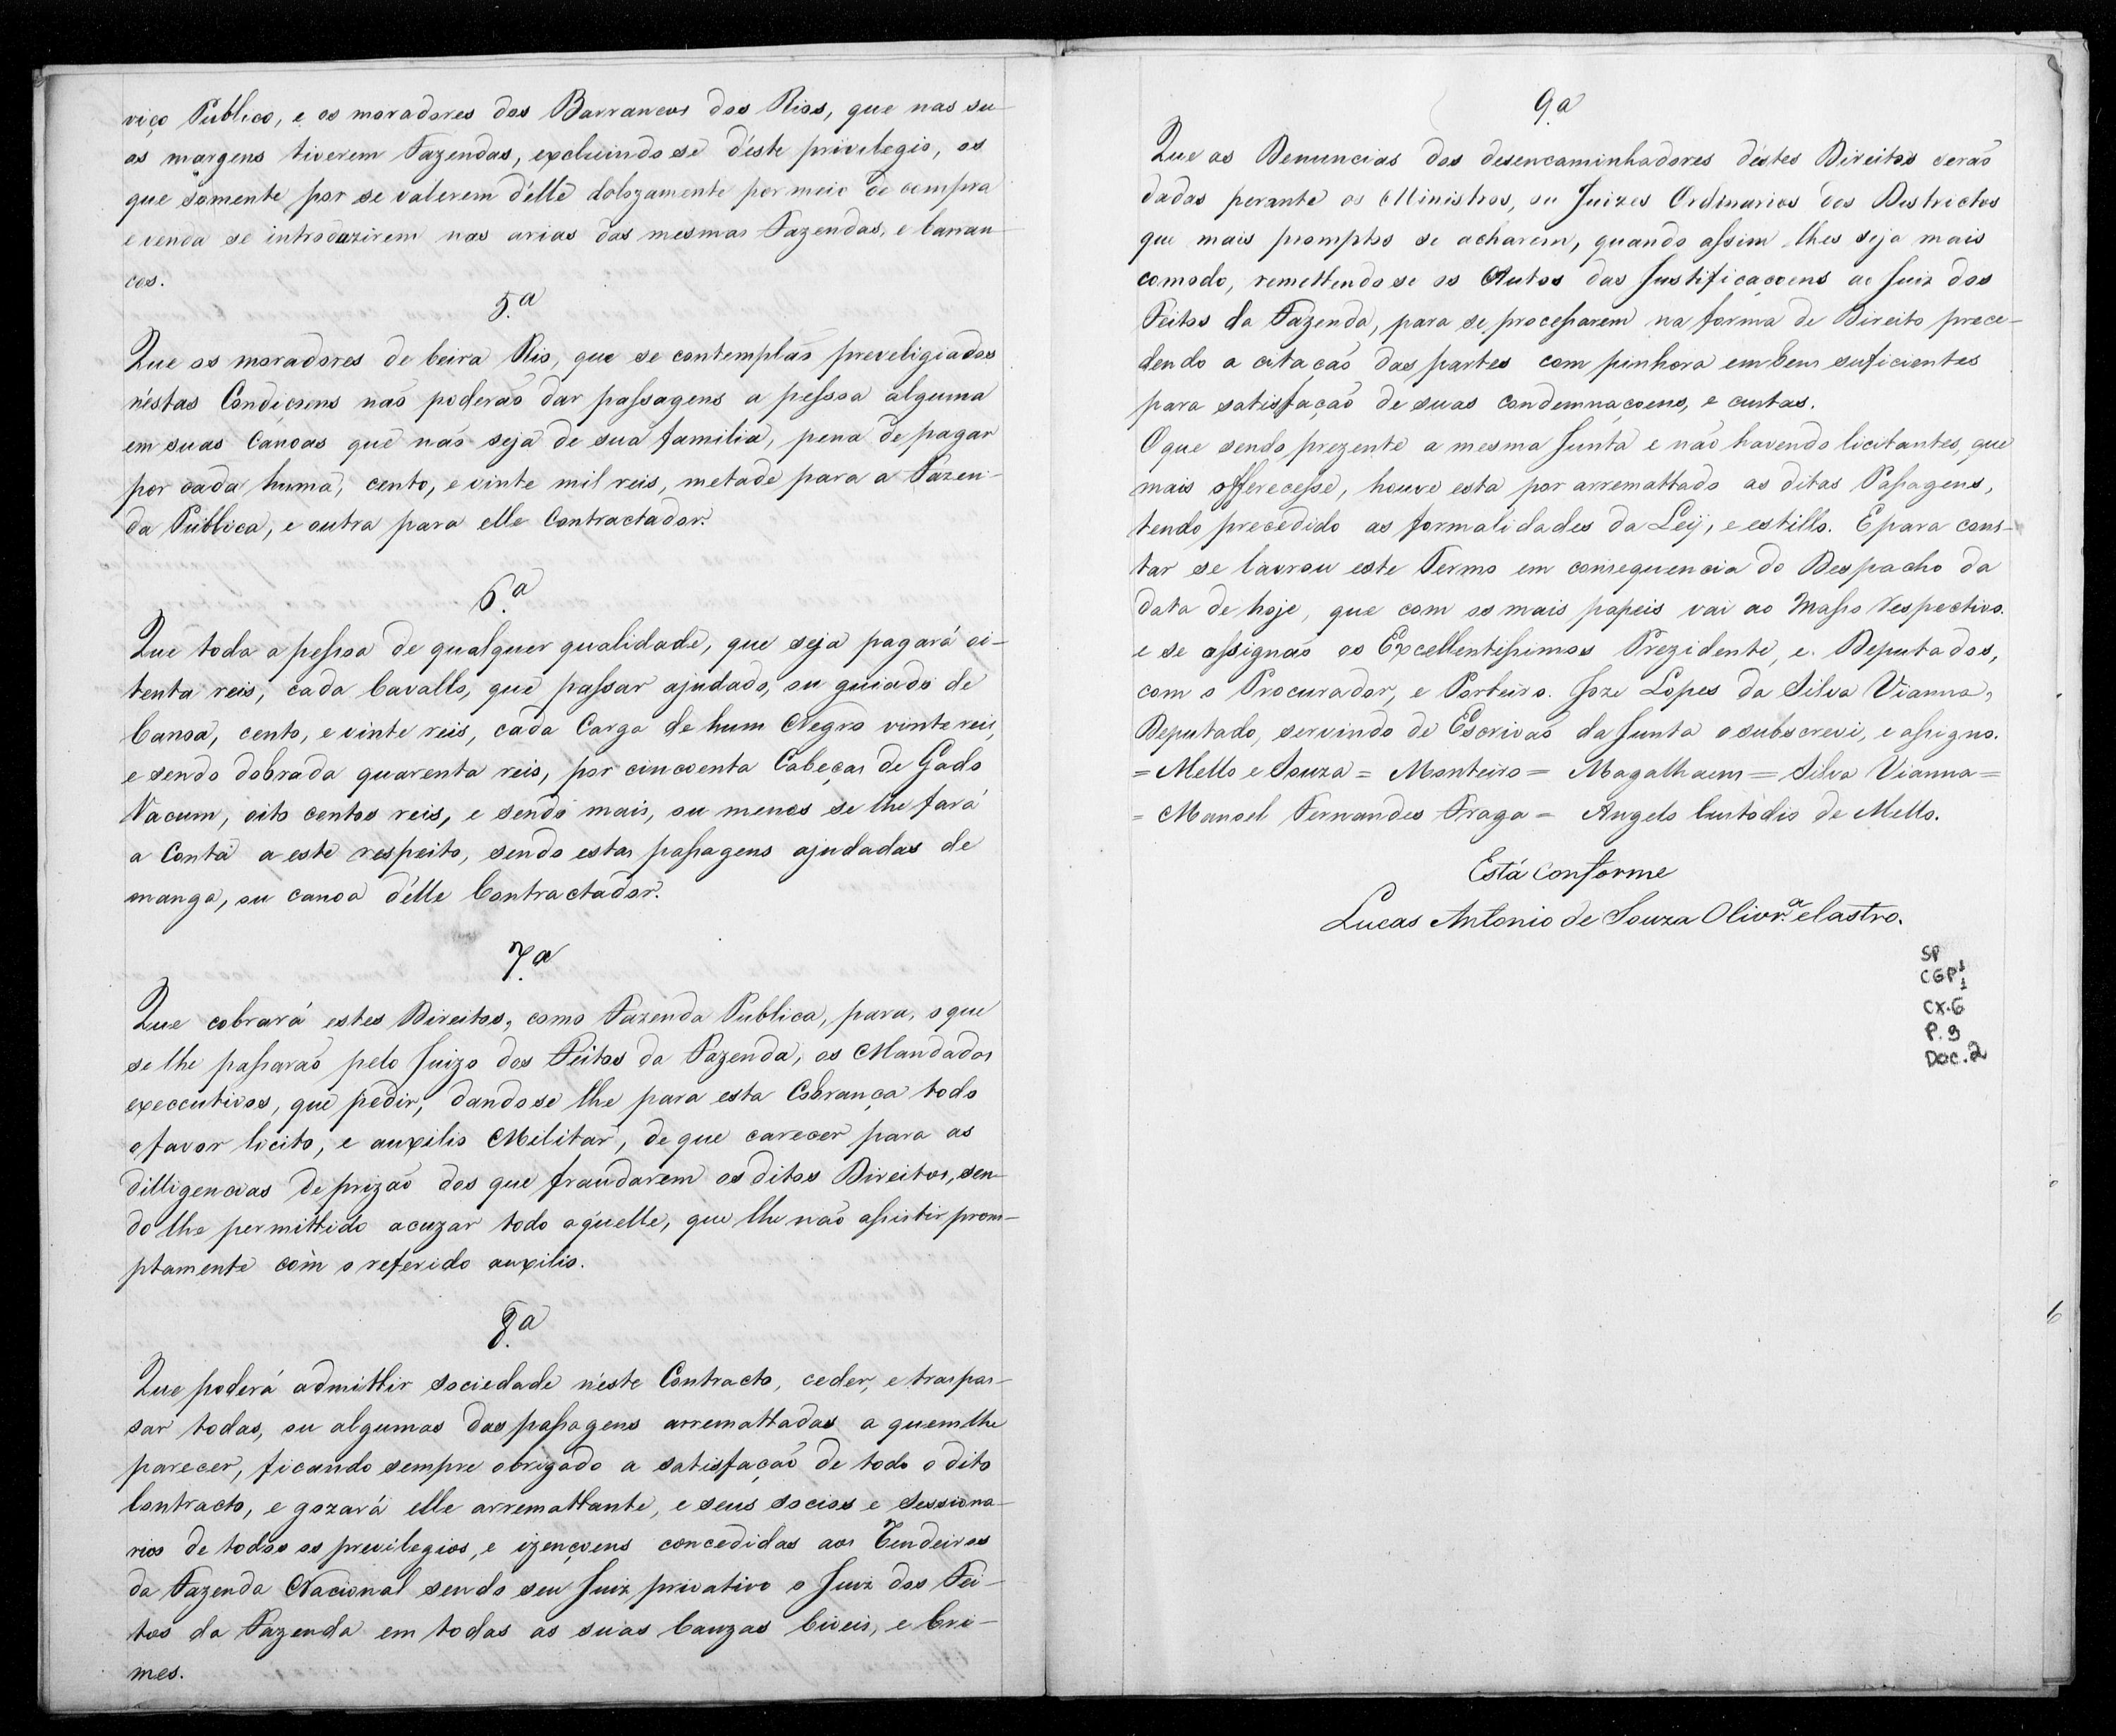 viço Publico, e os moradores dos Barrancos dos Rios, que nas su-
as margens tiverem Fazendas, excluindose d'éste privilegio, os
que sómente por se valerem d'élle dolozamente por meio de compra
e venda se introduzirem nas arias das mesmas Fazendas, e barran-
cos.
5.ª
Que os moradores de beira Rio, que se contemplaõ preveligiados
n'éstas Condiçoens naõ poderaõ dar passagens a pessoa alguma
em suas Canoas que naõ seja de sua familia, pena de pagar
por cada huma, cento, e vinte mil reis, metade para a Fazen-
da Publica, e outra para elle Contractador.
6.ª
Que toda a pessoa de qualquer qualidade, que seja pagará oi-
tenta reis, cada Cavallo, que passar ajudado, ou guiado de
Canoa, cento, e vinte reis, cada Carga de hum Negro vinte reis,
e sendo dobrada quarenta reis, por cincoenta Cabeças de Gado
Vacum, oito centos reis, e sendo mais, ou menos se lhe fará
a Conta a este respeito, sendo estas passagens ajudadas de
manga, ou canoa d'élle Contractador.
7.ª
Que cobrará estes Direitos, como Fazenda Publica, para, o que
se lhe passaraõ pelo Juizo dos Feitos da Fazenda, os Mandados
execcutivos, que pedir, dandose lhe para esta Cobrança todo
o favor licito, e auxilio Militar, de que carecer para as
dilligencias de prizaõ dos que fraudarem os ditos Direitos, sen-
do lhe permittido acuzar todo aquelle, que lhe naõ assistir prom-
ptamente com o referido auxilio.
8.ª
Que poderá admittir sociedade n'éste Contracto, ceder, e traspas-
sar todas, ou algumas das passagens arremattadas a quem lhe
parecer, ficando sempre obrigado a satisfaçaõ de todo o dito
Contracto, e gozará elle arremattante, e seus socios e sessiona-
rios de todos os previlegios, e izençoens concedidas aos Rendeiros
da Fazenda Nacional sendo seu Juiz privativo o Juiz dos Fei-
tos da Fazenda em todas as suas Cauzas Civeis, e Cri-
mes.
9.ª
Que as Denuncias dos desencaminhadores d'éstes Direitos seraõ
dadas perante os Ministros, ou Juizes Ordinarios dos Districtos
que mais promptos se acharem, quando assim lhes seja mais
comodo, remettendose os Autos das Justificaçoens ao Juiz dos
Feitos da Fazenda, para se processarem na forma de Direito prece-
dendo a citaçaõ das partes com pinhora em bens suficientes
para satisfaçaõ de suas Condemnaçoens, e custas.
O que sendo prezente a mesma Junta e naõ havendo licitantes, que
mais offerecesse, houve esta por arremattado as ditas Passagens,
tendo precedido as formalidades da Leij, e estillo. E para cons-
tar se lavrou este Termo em consequencia do Despacho da
data de hoje, que com os mais papeis vai ao Masso respectivo.
e se assignaõ os Excellentissimos Prezidente, e Deputados,
com o Procurador, e Porteiro. Joze Lopes da Silva Vianna,
Deputado, servindo de Escrivaõ da Junta o subscrevi, e assigno.
= Mello e Souza = Monteiro = Magalhaens = Silva Vianna =
= Manoel Fernandes Fraga = Angelo Custodio de Mello.
Está Conforme
Lucas Antonio de Souza Olivr.ª e Castro.
SP
CGP1
1
CX.6
P.9
Doc.2